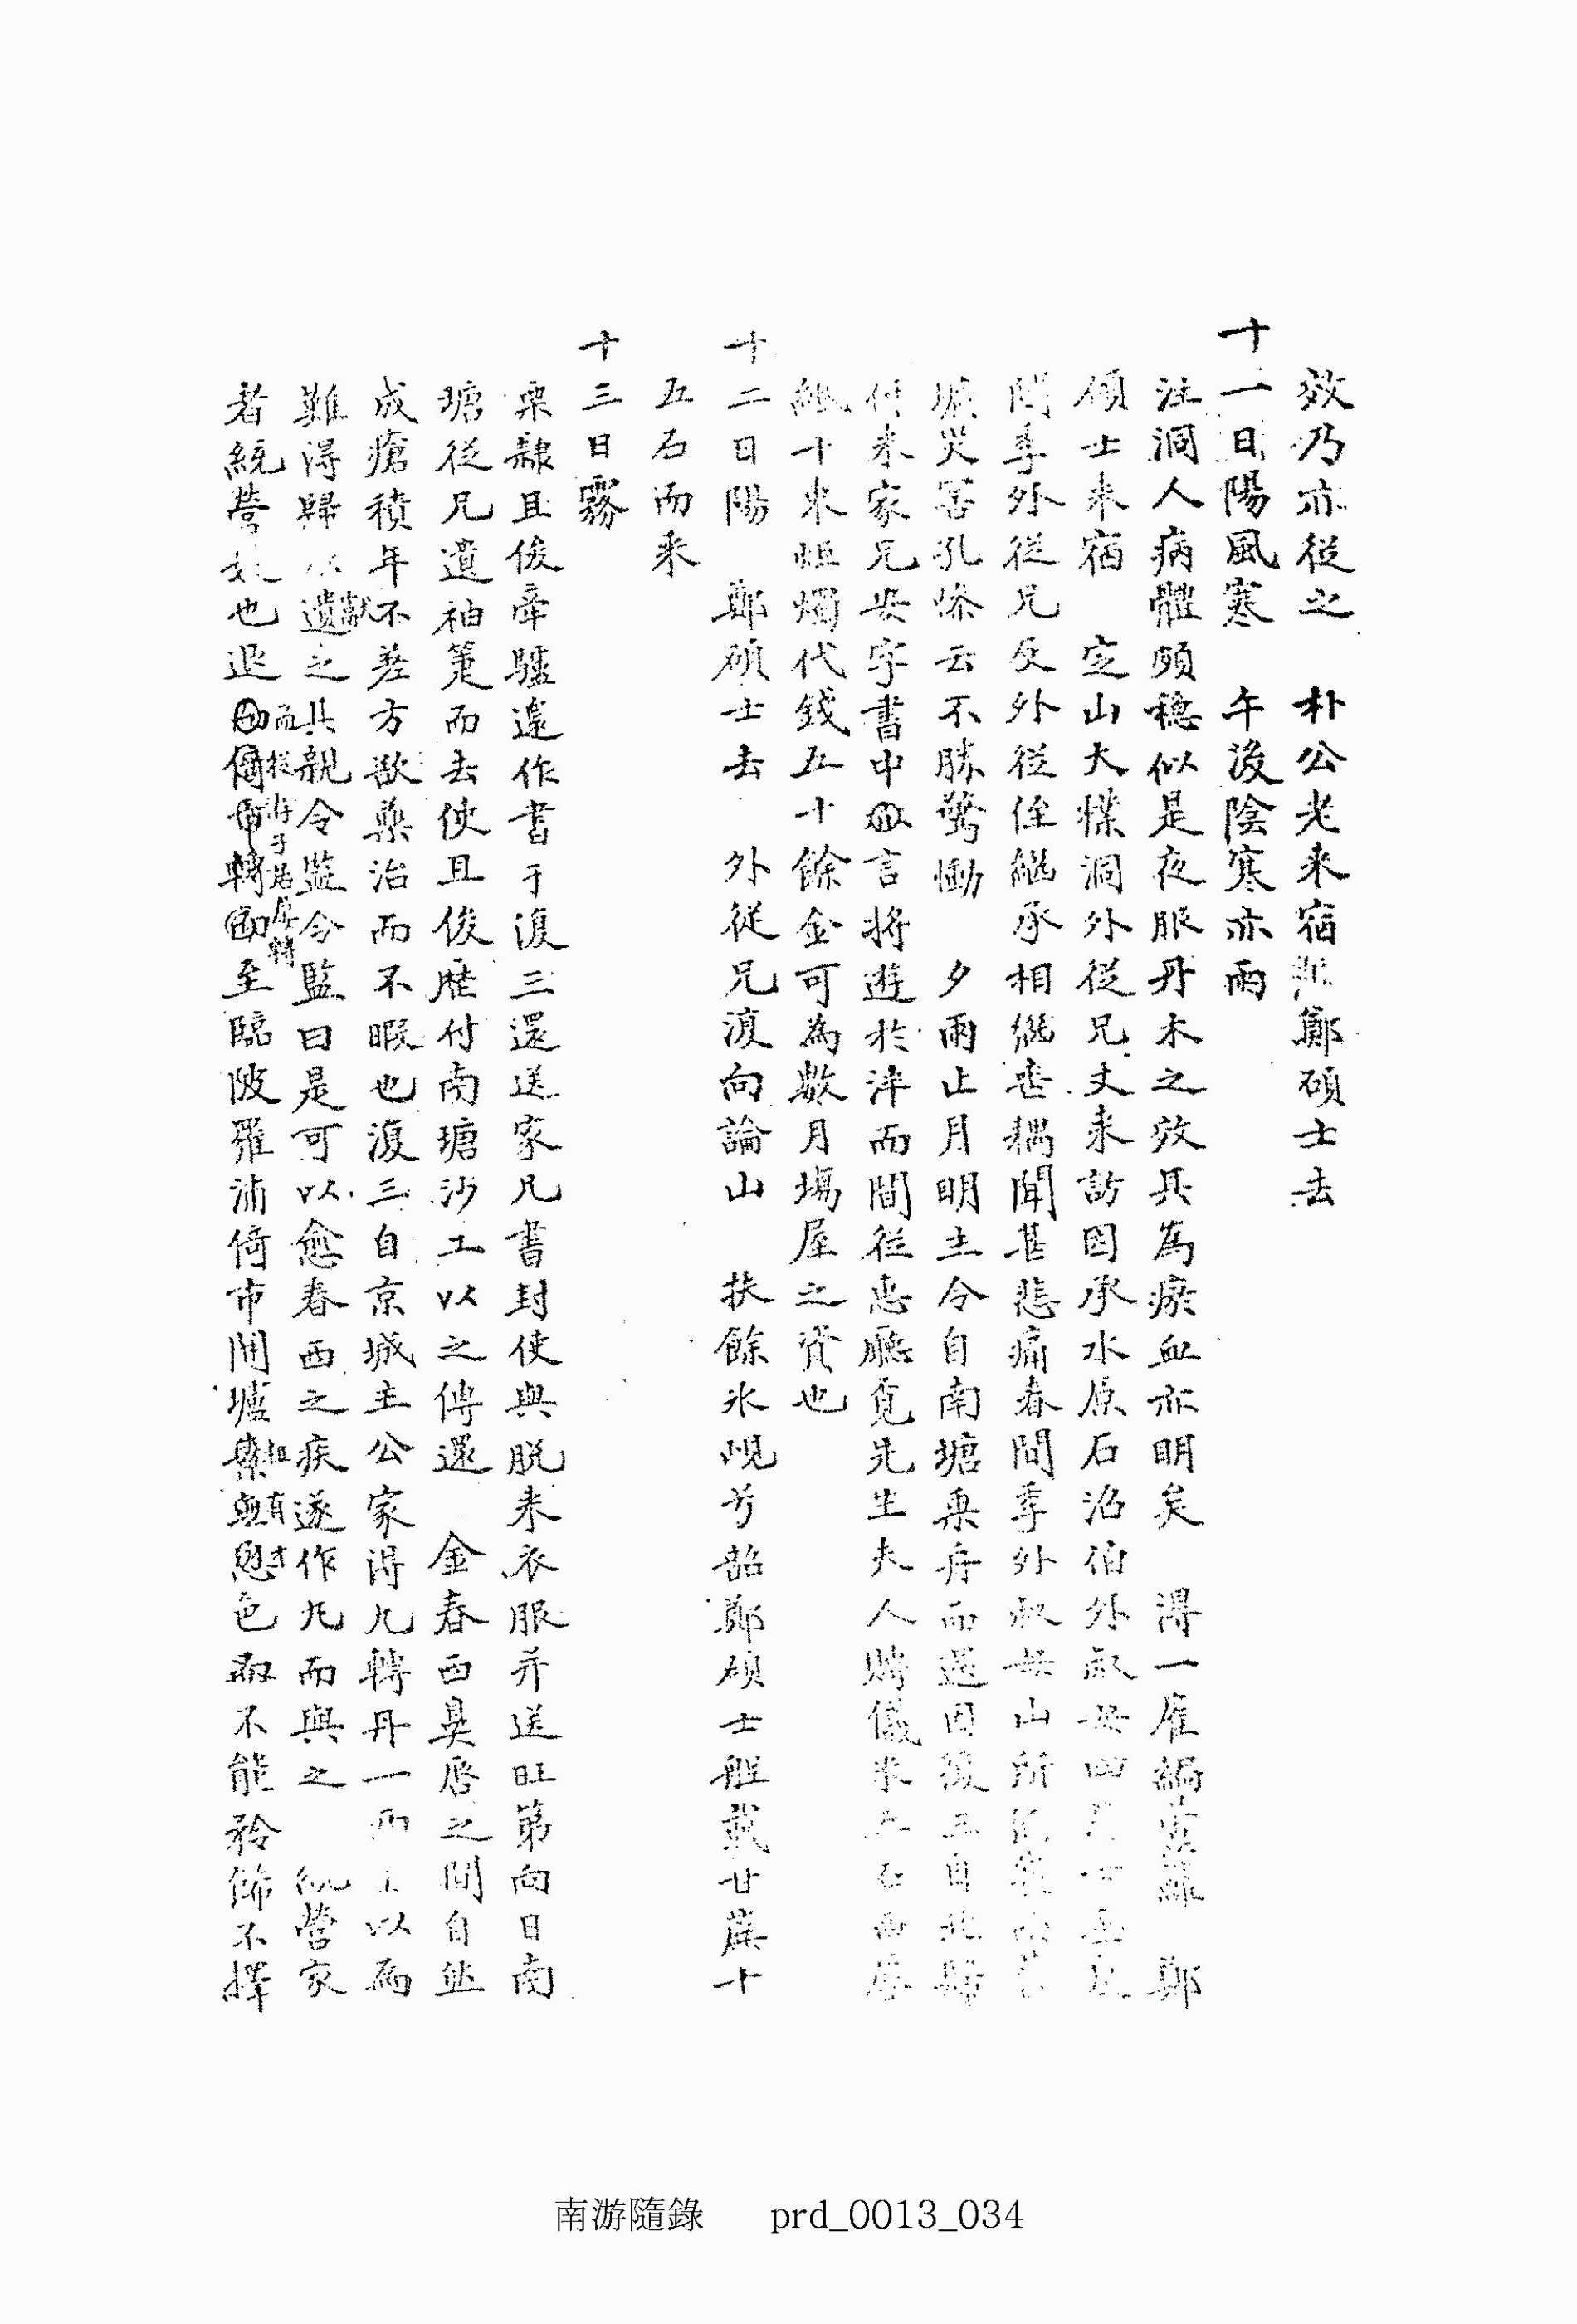 效乃亦從之　朴公老来宿　鄭碩士去
十一日陽風寒　午後陰寒亦雨
注洞人病體頗穩似是夜服丹木之效具為瘀血亦明矣　得一雁　鄭
碩士来宿　定山大樸洞外從兄丈来訪因承水原石沼伯外叔母四月
問季外從兄反外從侄継承相継丗耦聞甚悲痛春間季外叔母山所
墳災害孔慘云不勝驚慟　夕雨止月明主令自南塘乗舟而還因復三自北歸
付来家兄安字書中言將遊於泮而間從惠廳覓先生夫人賻儀米
紙十束炬燭代錢五十餘金可為數月塲屋之資也
十二日陽　鄭碩士去　外從兄復向論山　扶餘氷峴芳韶鄭碩士船載廿蔴十
五石而来
十三日霧
栗隷且俊牽驢遠作書于復三還送家兄書封使與脱来衣服并送旺第向日南
塘從兄遺袖箑而去使且俊歴付南塘沙工以之傳還　金春西臭唇之間自然
成瘡積年不差方欲藥治而不暇也復三自京城主公家得九轉丹一兩以為
難得歸以獻遺之其親令監令監曰是可以愈春西之疾遂作丸而與之　統營家
者統營也退而至臨陂羅浦倚市開壚有色不能矜飾不擇
南游隨錄　prd_0013_034